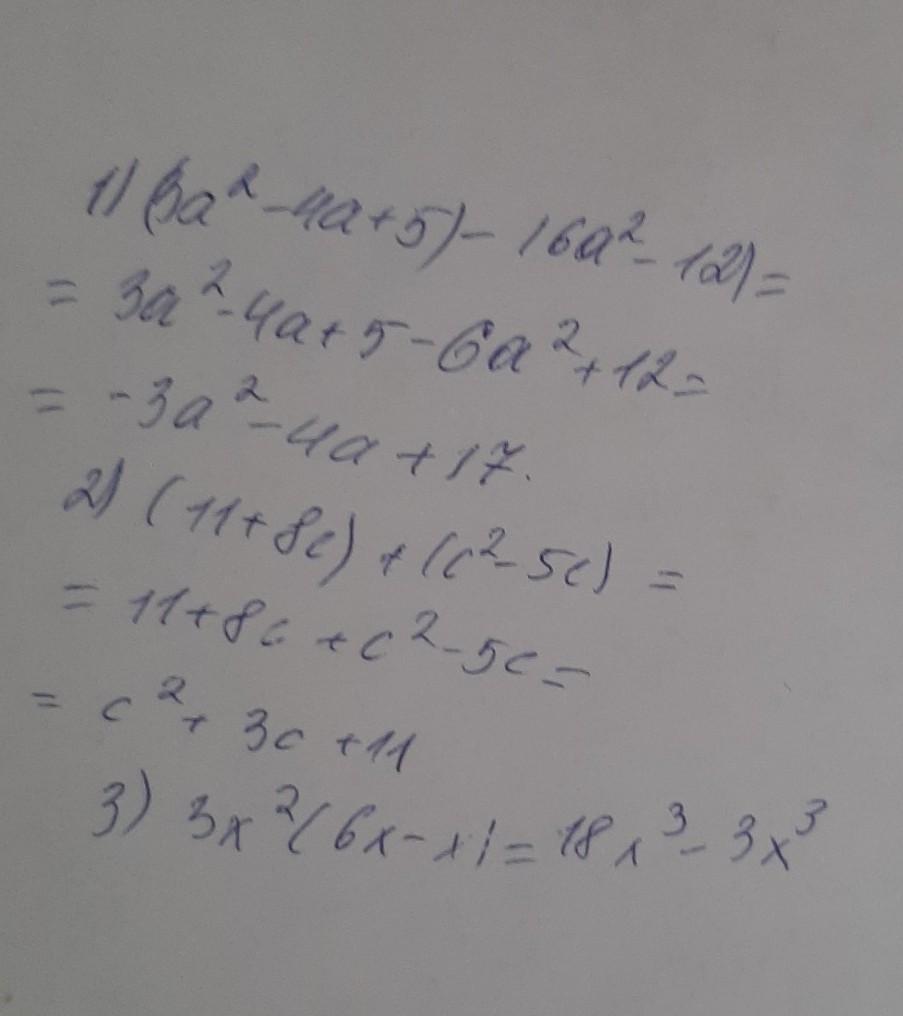 1) (3a² - 4a + 5) - (6a² - 12) =
= 3a² - 4a + 5 - 6a² + 12 =
= -3a² - 4a + 17.
2) (11 + 8c) + (c² - 5c) =
= 11 + 8c + c² - 5c =
= c² + 3c + 11
3) 3x² (6x - x) = 18x³ - 3x³